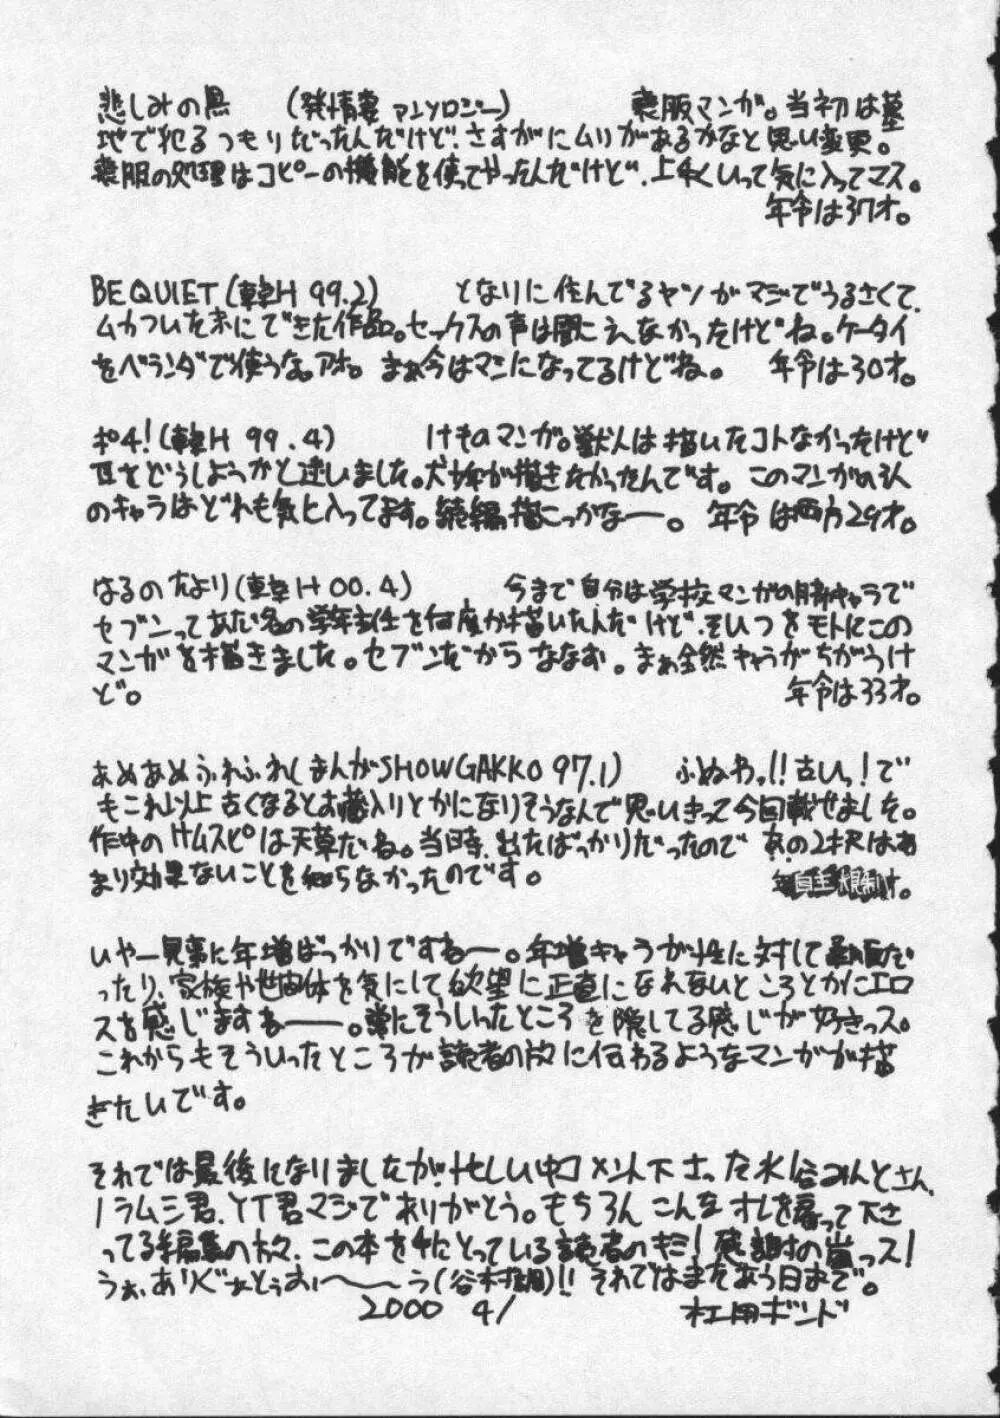 悲しみの黒 (発情妻アンソロジー) 喪服マンガ。当初は墓
地で犯るつもりだったんだけど、さすがにムリがあるかなと思い変更。
喪服の処理はコピーの機能を使ってやったんだけど、上手くいって気に入ってマス。
年令は37才。
BE QUIET (韓H 99.2) となりに住んでるヤツがマジでうるさくて、
ムカついた末にできた作品。セックスの声は聞こえなかったけどね。ケータイ
をベランダで使うな。アホ。まぁ今はマシになってるけどね。 年令は30才。
ポチ! (韓H 99.4) けものマンガ。獣人は描いたコトなかったけど
耳をどうしようかと迷いました。犬が描きたかったんです。このマンガの3人
のキャラはどれも気に入ってます。続編描こっかなー。 年令は両方29才。
はるのたより (韓H 00.4) 今まで自分は学校マンガの脇キャラで
セブンってあだ名の学年主任を何度か描いたんだけど、そいつをモトにこの
マンガを描きました。セブンだからななお。まぁ全然キャラがちがうけ
ど。 年令は33才。
あめあめふれふれ (まんがSHOWGAKKO 97.1) ふぬわっ!!古いっ!で
もこれ以上古くなるとお蔵入りとかになりそうなんで思いきって今回載せました。
作中のサムスピは天草だね。当時、出たばっかりだったので あの2択はあ
まり効果ないことを知らなかったのです。 年自主規制才。
いやー見事に年増ばっかりですねー。年増キャラが性に対して だ
ったり、家族や世間体を気にして欲望に正直になれないところとかにエロ
スを感じますねー。常にそういったところを隠してる感じが好きっス。
これからもそういったところが読者の方に伝わるようなマンガが描
きたいです。
それでは最後になりましたが、忙しい中コメント下さった水谷みんとさん、
ノラムシ君、YT君マジでありがとう。もちろんこんなオレを雇って下さ
ってる編集の方々、この本を手にとっている読者のキミ!感謝の嵐っス!
うぉ、ありぐぁとぅおぃ～～う(谷村)!! それではまたあう日まで。
2000 4/ 杠用ボンド